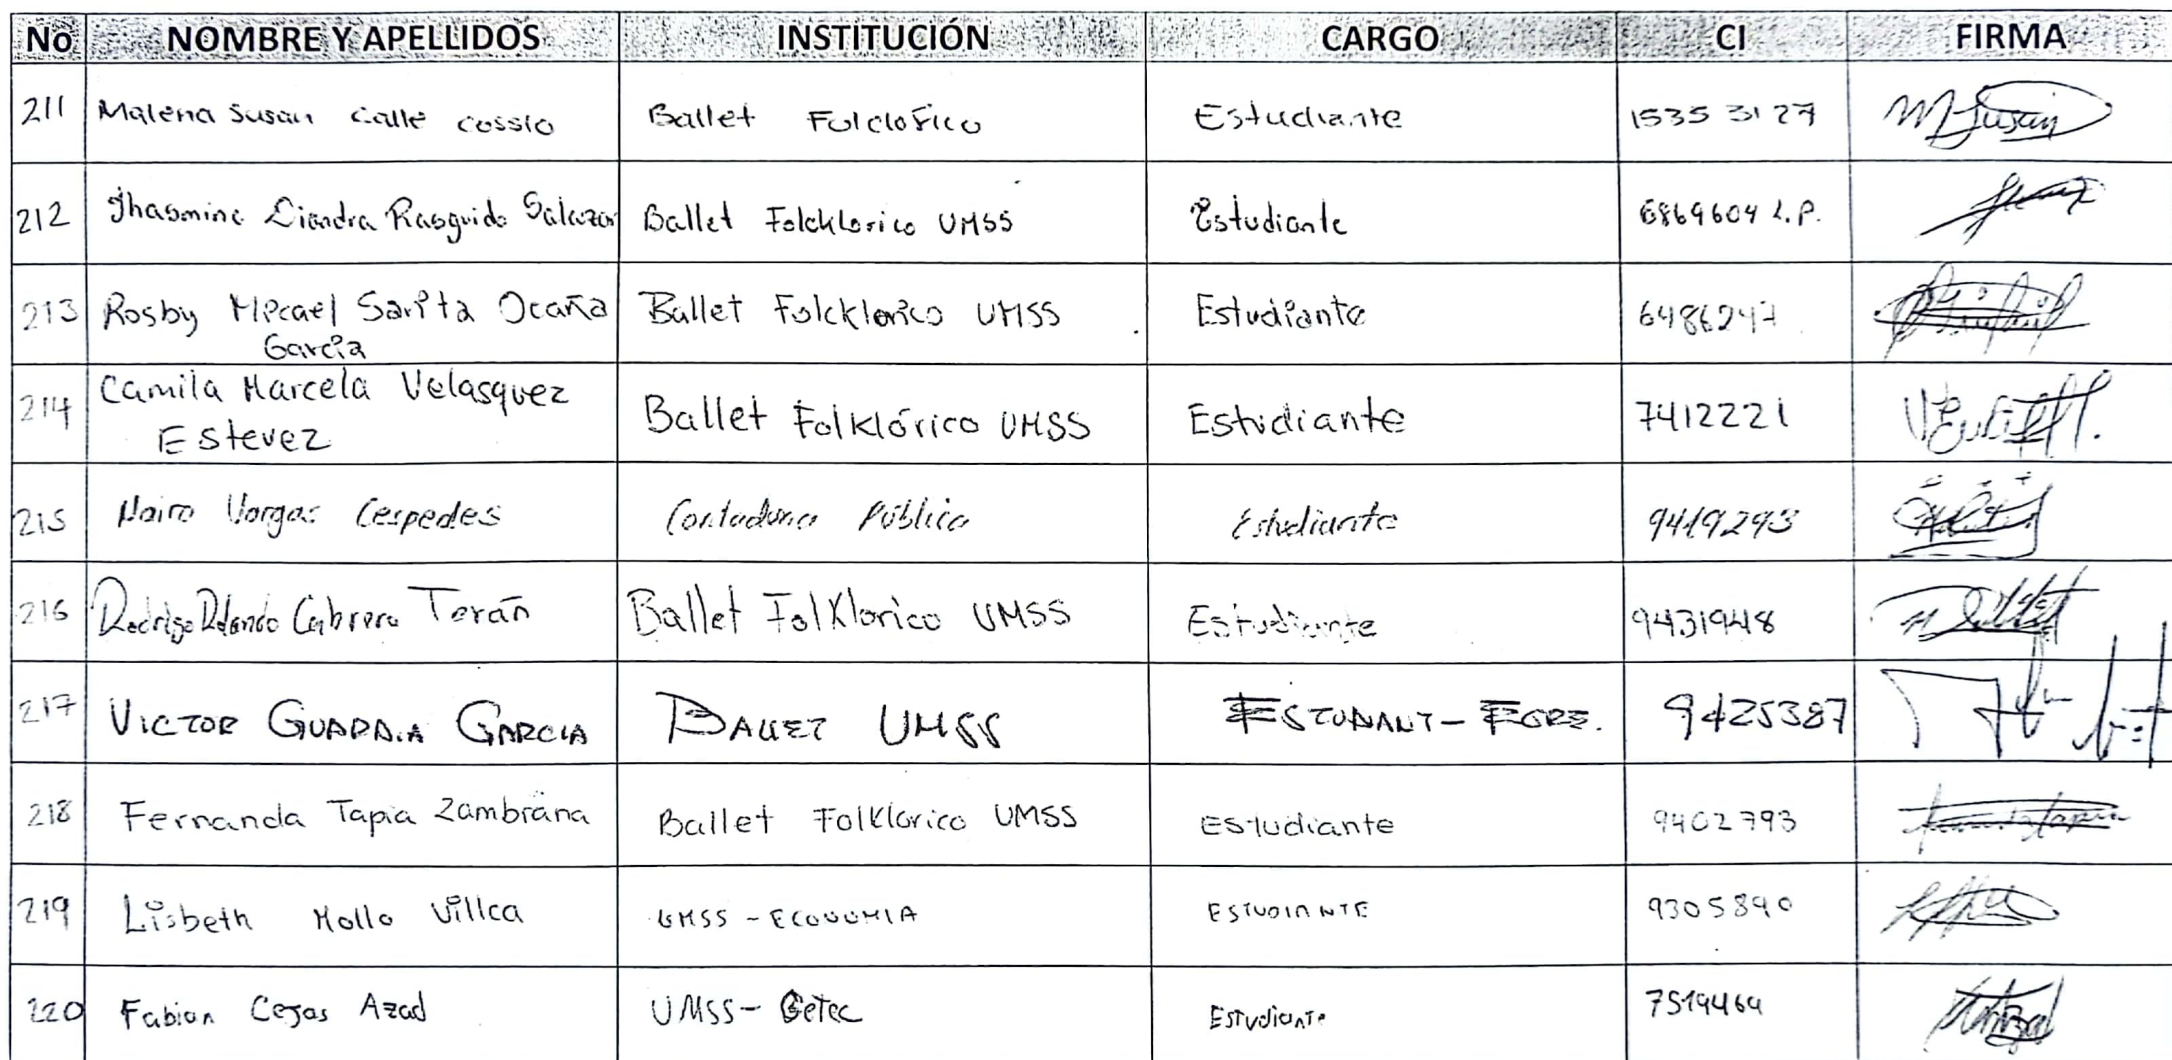 No NOMBRE Y APELLIDOS INSTITUCIÓN CARGO CI FIRMA
211 Malena Susan Calle Cossio Ballet Folclorico Estudiante 1535 31 27
212 Jhasmine Liandra Rasguido Salazar Ballet Folcklorico UMSS Estudiante 6869604 L.P.
213 Rosby Micael Sarita Ocaña Ballet Folcklorico UMSS Estudiante 6486247
Garcia
214 Camila Marcela Velasquez Ballet Folklórico UMSS Estudiante 7412221
Estevez
215 Vargas Cespedes Contaduria Pública Estudiante 9419293
216 Rodrigo Rolando Cabrera Terán Ballet Folklorico UMSS Estudiante 9431948
217 VICTOR GUARDIA GARCIA BALLET UMSS ESTUDANT- EGRE. 9425387
218 Fernanda Tapia Zambrana Ballet Folklorico UMSS Estudiante 9402793
219 Lisbeth Mollo Villca UMSS - ECONOMIA ESTUDIANTE 9305890
220 Fabian Cejas Azad UMSS- Getec Estudiante 7519464